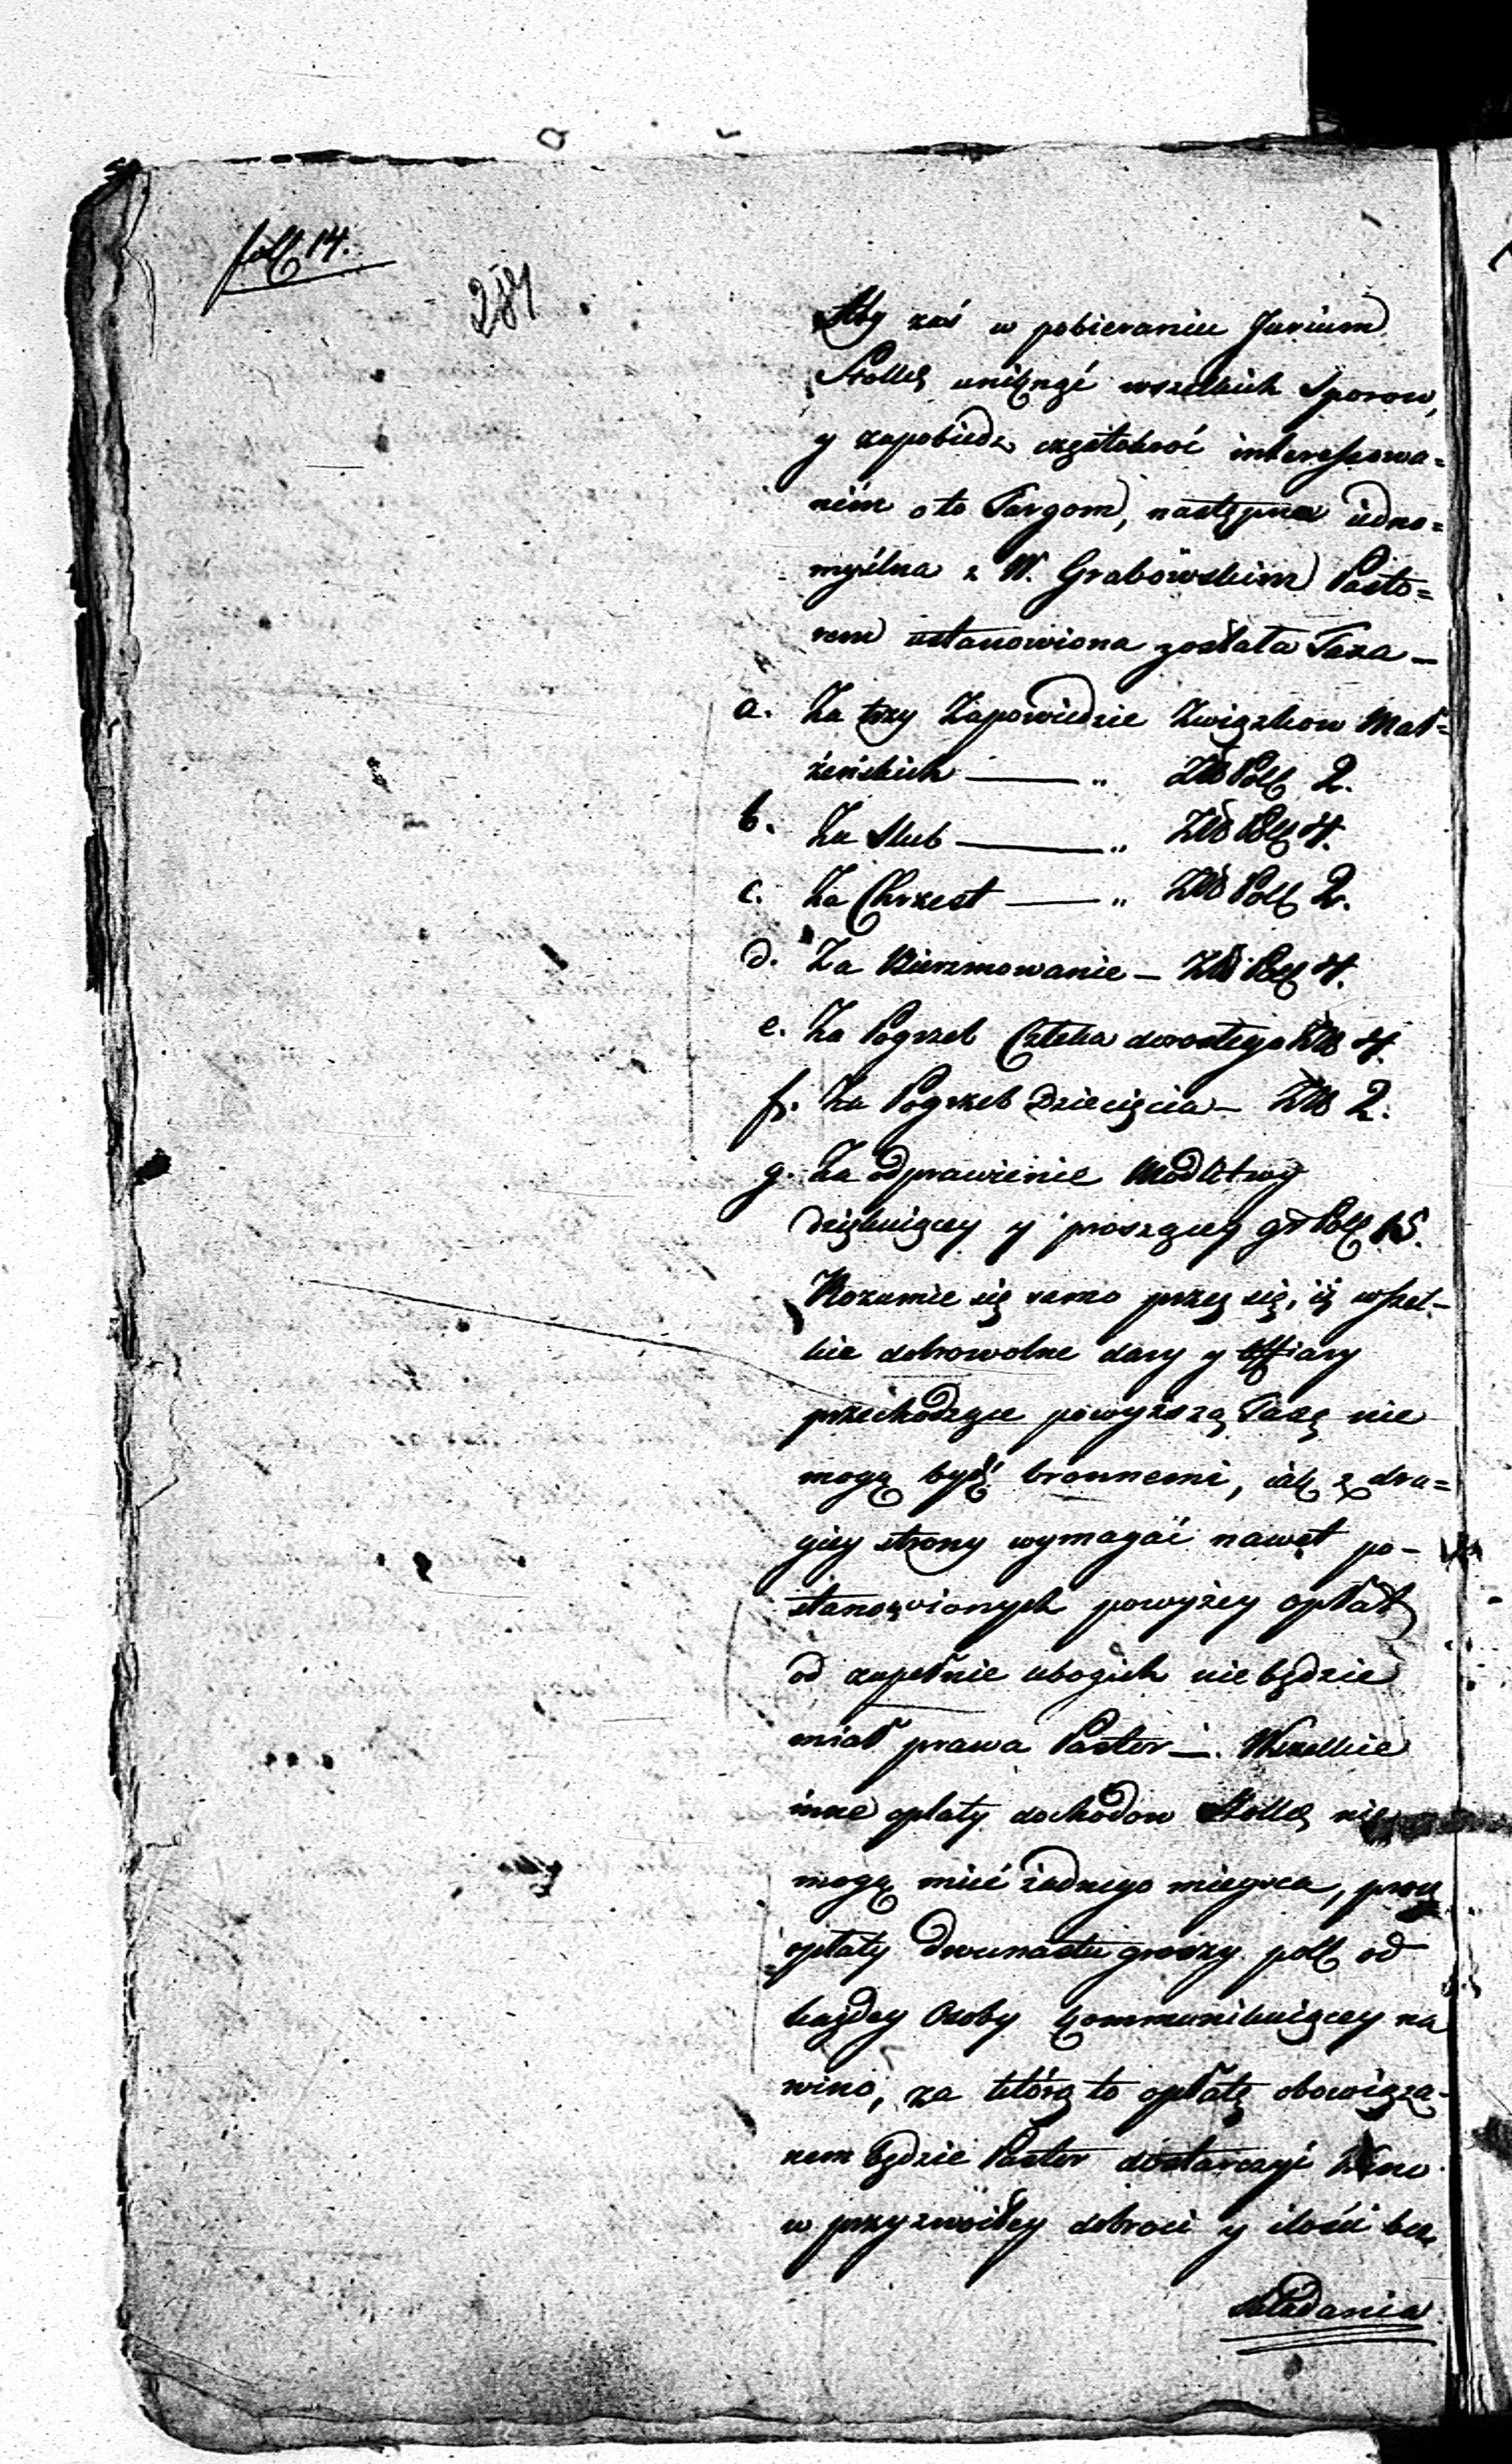 foll 14.
284
Aby zaś w pobieraniu Jurium
Stollæ uniknąć wszelkich Sporow,
y zapobiedz częstokroć interessowa=
nim o to Targom, następna iedno=
myślna z W. Grabowskim Pasto=
rem ustanowiona została Taxa —
a. Za trzy Zapowiedzie Związkow Mał=
żeńskich — " Złł Poll 2.
b. Za Slub — " Złł Poll 4.
c. Za Chrzest — " Złł Poll 2.
d. Za Bierzmowanie — Złł Poll 4.
e. Za Pogrzeb Człeka dorosłego Złł 4.
f. Za Pogrzeb Dziecięcia — Złł 2.
g. Za odprawienie Modlitwy
dziękuiącey y proszącey gr Poll 15.
Rozumie się samo przez się, iż wszel-
kie dobrowolne dary y Offiary
przechodzące powyższą Taxę nie
mogą bydź bronnemi, iak z dru=
giey strony wymagać nawet po-
stanowionych powyżey opłat
od zupełnie ubogich nie będzie
miał prawa Pastor —. Wszelkie
inne opłaty dochodow Stollæ nie
mogą mieć żadnego mieysca, prócz
opłaty Dwunastu groszy poll od
każdey Osoby kommunikuiącey na
wino, za którą to opłatę obowiąza-
nem będzie Pastor dostarczyć Wino
w przyzwoitey dobroci y ilości bez
składania